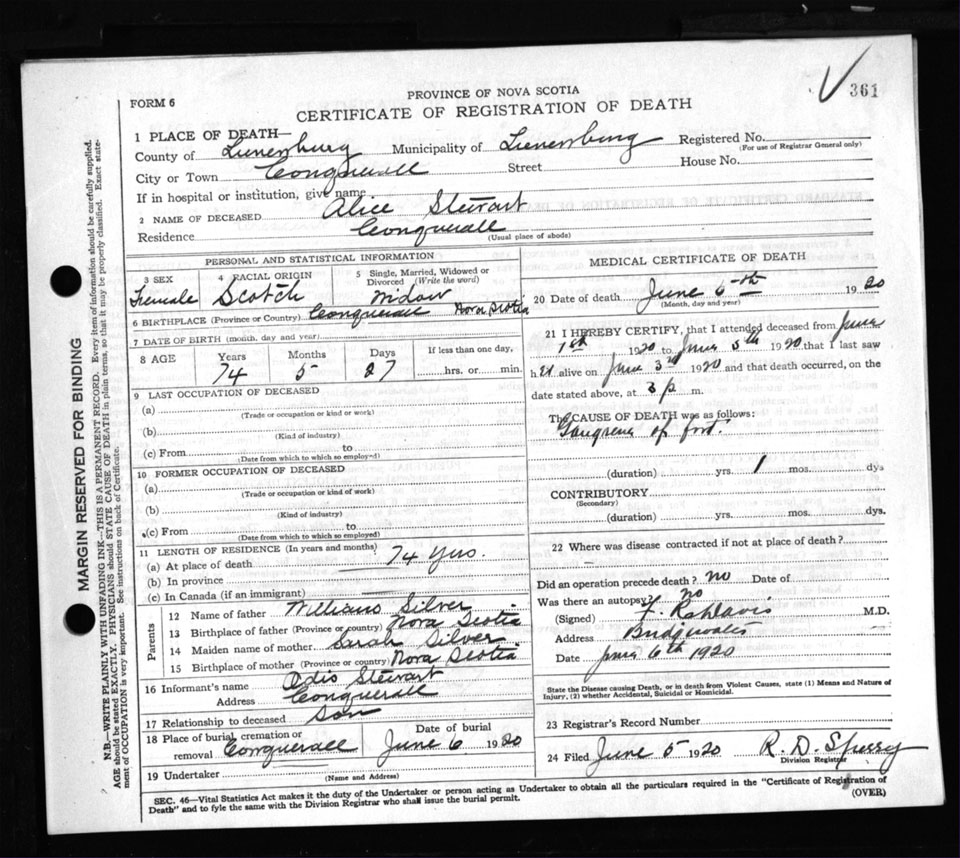 361
PROVINCE OF NOVA SCOTIA
FORM 6
CERTIFICATE OF REGISTRATION OF DEATH
1 PLACE OF DEATH—
County of Lunenburg Municipality of Lunenburg Registered No.
(For use of Registrar General only)
City or Town Conquerall Street House No.
If in hospital or institution, give name
2 NAME OF DECEASED Alice Stewart
Residence Conquerall
(Usual place of abode)
PERSONAL AND STATISTICAL INFORMATION
3 SEX 4 RACIAL ORIGIN 5 Single, Married, Widowed or Divorced (Write the word)
Female Scotch Widow
6 BIRTHPLACE (Province or Country) Conquerall Nova Scotia
7 DATE OF BIRTH (month, day and year)
8 AGE Years Months Days If less than one day,
74 5 27 hrs. or min.
9 LAST OCCUPATION OF DECEASED
(a)
(Trade or occupation or kind or work)
(b)
(Kind of industry)
(c) From to
(Date from which to which so employed)
10 FORMER OCCUPATION OF DECEASED
(a)
(Trade or occupation or kind of work)
(b)
(Kind of industry)
(c) From to
(Date from which to which so employed)
11 LENGTH OF RESIDENCE (In years and months)
(a) At place of death 74 Yrs.
(b) In province
(c) In Canada (if an immigrant)
Parents
12 Name of father William Silver
13 Birthplace of father (Province or country) Nova Scotia
14 Maiden name of mother Sarah Silver
15 Birthplace of mother (Province or country) Nova Scotia
16 Informant's name Odis Stewart
Address Conquerall
17 Relationship to deceased Son
18 Place of burial, cremation or removal Conquerall Date of burial June 6 1920
19 Undertaker
(Name and Address)
MEDICAL CERTIFICATE OF DEATH
20 Date of death June 5th 1920
(Month, day and year)
21 I HEREBY CERTIFY, that I attended deceased from June
1st 1920 to June 5th 1920 that I last saw
her alive on June 3rd 1920 and that death occurred, on the
date stated above, at 3 p m.
The CAUSE OF DEATH was as follows:
Gangrene of foot.
(duration) yrs. 1 mos. dys
CONTRIBUTORY
(Secondary)
(duration) yrs. mos. dys.
22 Where was disease contracted if not at place of death?
Did an operation precede death? no Date of
Was there an autopsy? no
(Signed) Davis M.D.
Address Bridgewater
Date June 6th 1920
State the Disease causing Death, or in death from Violent Causes, state (1) Means and Nature of
Injury, (2) whether Accidental, Suicidal or Homicidal.
23 Registrar's Record Number
24 Filed June 5 1920 R. D.
Division Registrar
SEC. 46—Vital Statistics Act makes it the duty of the Undertaker or person acting as Undertaker to obtain all the particulars required in the "Certificate of Registration of
Death" and to fyle the same with the Division Registrar who shall issue the burial permit.
(OVER)
MARGIN RESERVED FOR BINDING
N.B.—WRITE PLAINLY WITH UNFADING INK—THIS IS A PERMANENT RECORD. Every item of information should be carefully supplied.
AGE should be stated EXACTLY. PHYSICIANS should STATE CAUSE OF DEATH in plain terms, so that it may be properly classified. Exact state-
ment of OCCUPATION is very important. See instructions on back of Certificate.